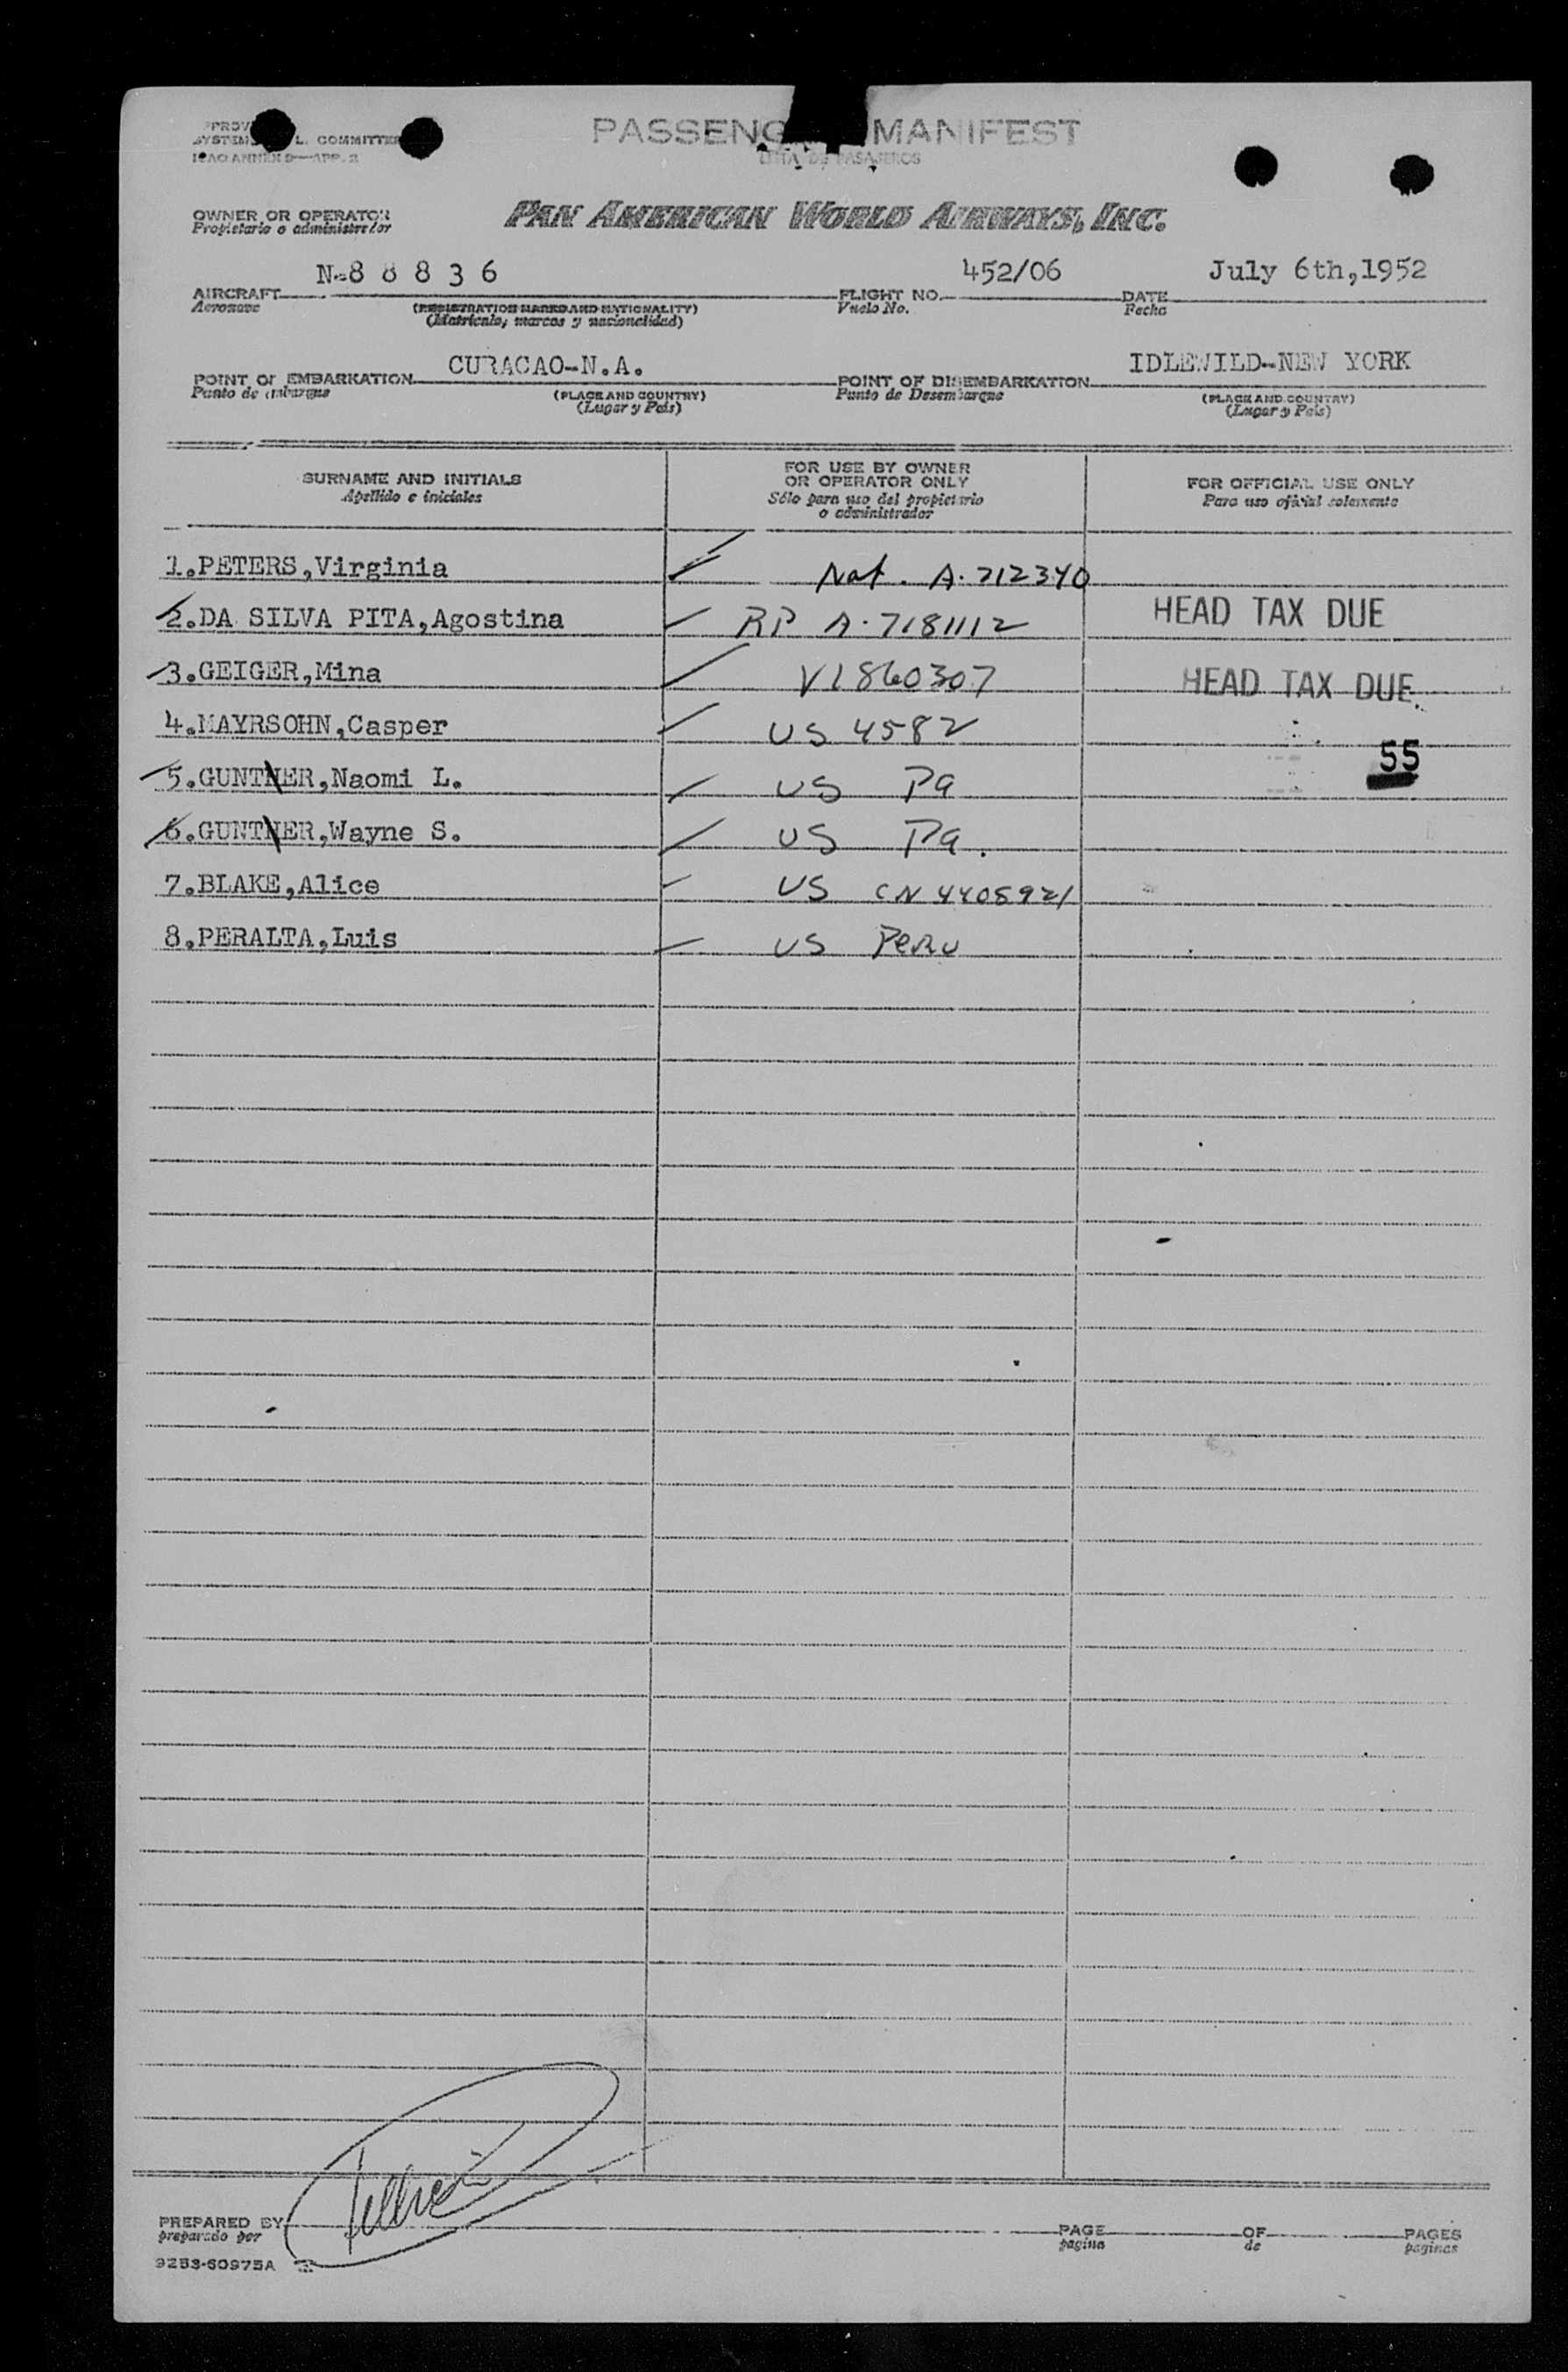 PASSENG MANIFEST
LISTA DE PASAJEROS
SYSTEM L. COMMITTEE
ICAO ANNEX 9—APP. 2
OWNER OR OPERATOR
Propietario o administrador
PAN AMERICAN WORLD AIRWAYS, INC.
AIRCRAFT N-8 8 8 3 6 FLIGHT NO. 452/06 DATE July 6th,1952
Aeronave (REGISTRATION MARKS AND NATIONALITY) Vuelo No. Fecha
(Matrícula, marcas y nacionalidad)
POINT OF EMBARKATION CURACAO-N.A. POINT OF DISEMBARKATION IDLEWILD-NEW YORK
Punto de embarque (PLACE AND COUNTRY) Punto de Desembarque (PLACE AND COUNTRY)
(Lugar y País) (Lugar y País)
SURNAME AND INITIALS
Apellido e iniciales
FOR USE BY OWNER
OR OPERATOR ONLY
Sólo para uso del propietario
o administrador
FOR OFFICIAL USE ONLY
Para uso oficial solamente
1.PETERS,Virginia Nat. A.712340
2.DA SILVA PITA,Agostina RP A-7181112 HEAD TAX DUE
3.GEIGER,Mina V1860307 HEAD TAX DUE
4.MAYRSOHN,Casper US 4582
55
5.GUNTHER,Naomi L. US Pa
6.GUNTHER,Wayne S. US Pa.
7.BLAKE,Alice US CN 4405921
8.PERALTA,Luis US Peru
PREPARED BY PAGE OF PAGES
preparado por pagina de paginas
9253-60975A